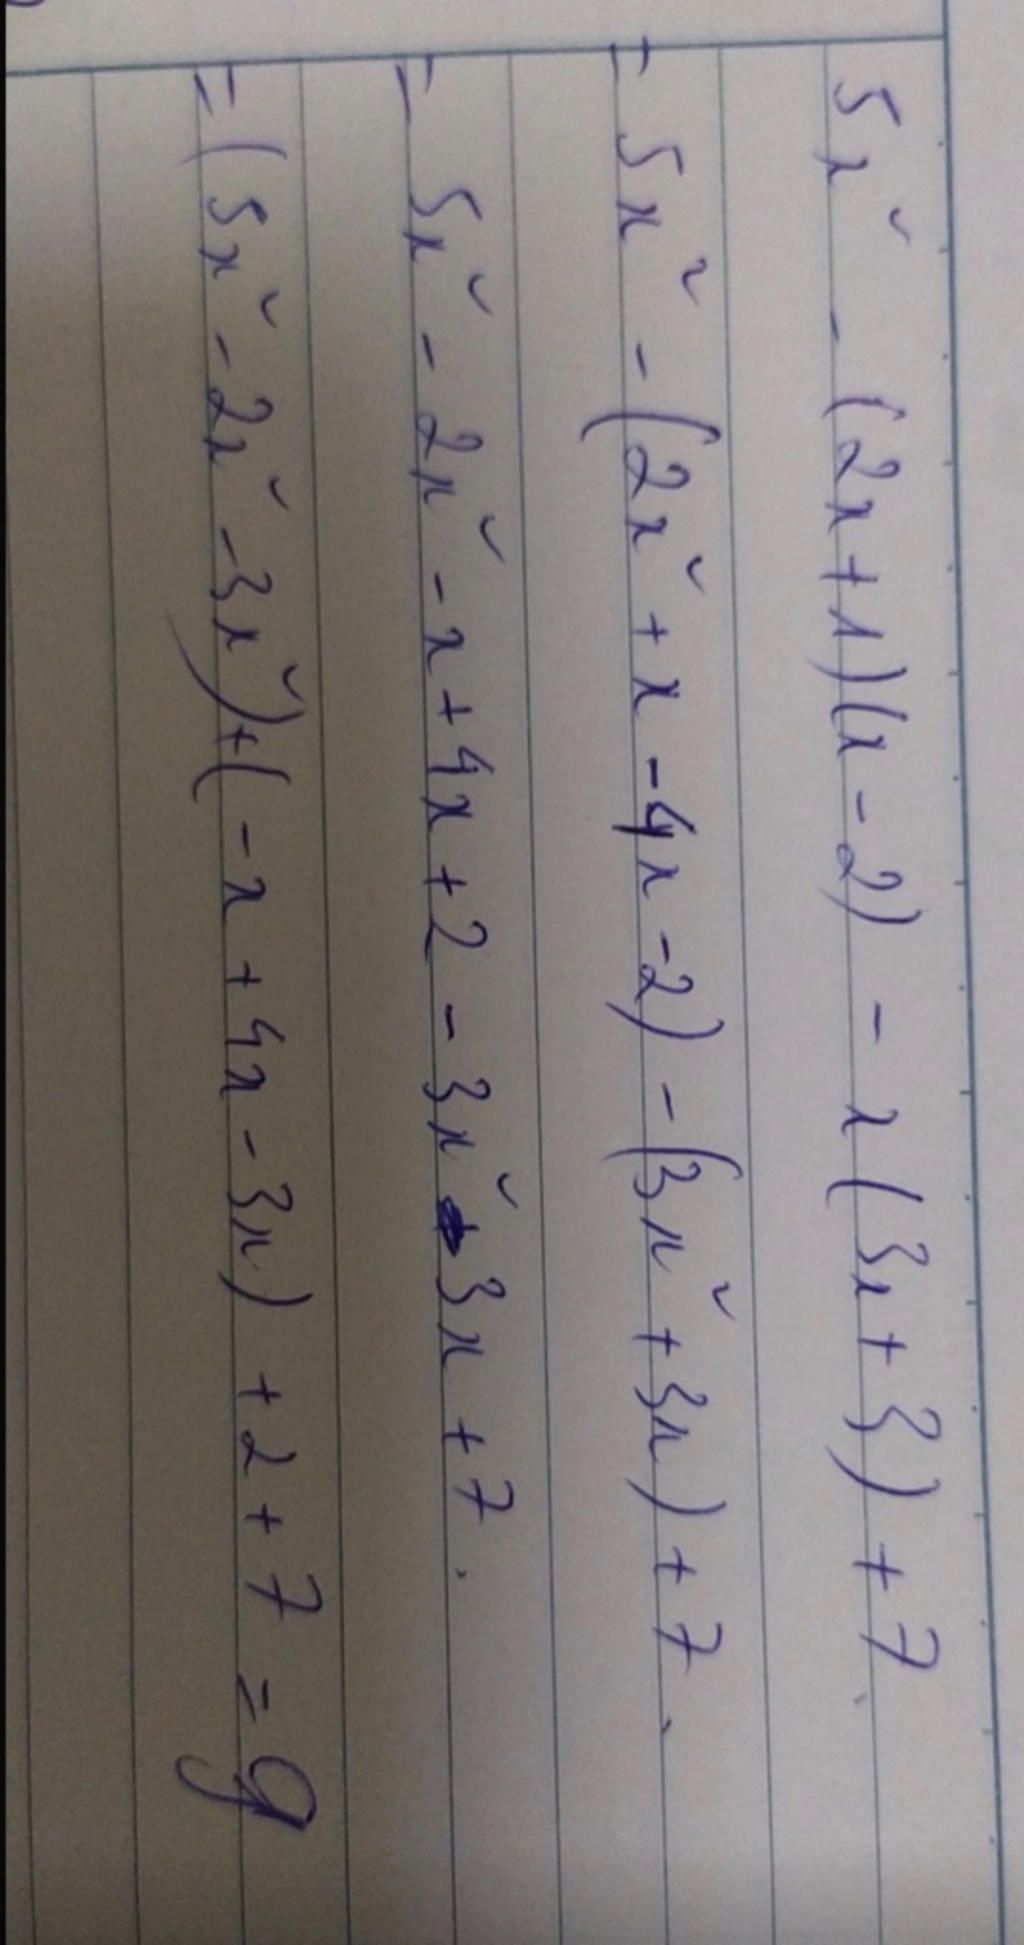 5x² - (2x+1)(x-2) - x(3x+3) + 7
= 5x² - (2x² + x - 4x - 2) - (3x² + 3x) + 7.
= 5x² - 2x² - x + 4x + 2 - 3x² - 3x + 7.
= (5x² - 2x² - 3x²) + (-x + 4x - 3x) + 2 + 7 = 9